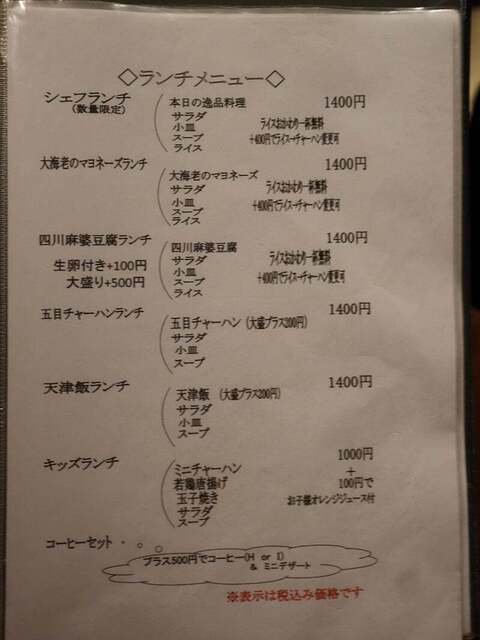 ◇ランチメニュー◇
シェフランチ
(数量限定)
1400円
本日の逸品料理
サラダ
小皿
スープ
ライス
ライスおかわり一杯無料
+400円でライス→チャーハン変更可
大海老のマヨネーズランチ
1400円
大海老のマヨネーズ
サラダ
小皿
スープ
ライス
ライスおかわり一杯無料
+400円でライス→チャーハン変更可
四川麻婆豆腐ランチ
生卵付き+100円
大盛り+500円
1400円
四川麻婆豆腐
サラダ
小皿
スープ
ライス
ライスおかわり一杯無料
+400円でライス→チャーハン変更可
五目チャーハンランチ
1400円
五目チャーハン (大盛プラス200円)
サラダ
小皿
スープ
天津飯ランチ
1400円
天津飯 (大盛プラス200円)
サラダ
小皿
スープ
キッズランチ
1000円
ミニチャーハン
若鶏唐揚げ
玉子焼き
サラダ
スープ
+
100円で
お子様オレンジジュース付
コーヒーセット・
プラス500円でコーヒー(H or I)
& ミニデザート
※表示は税込み価格です